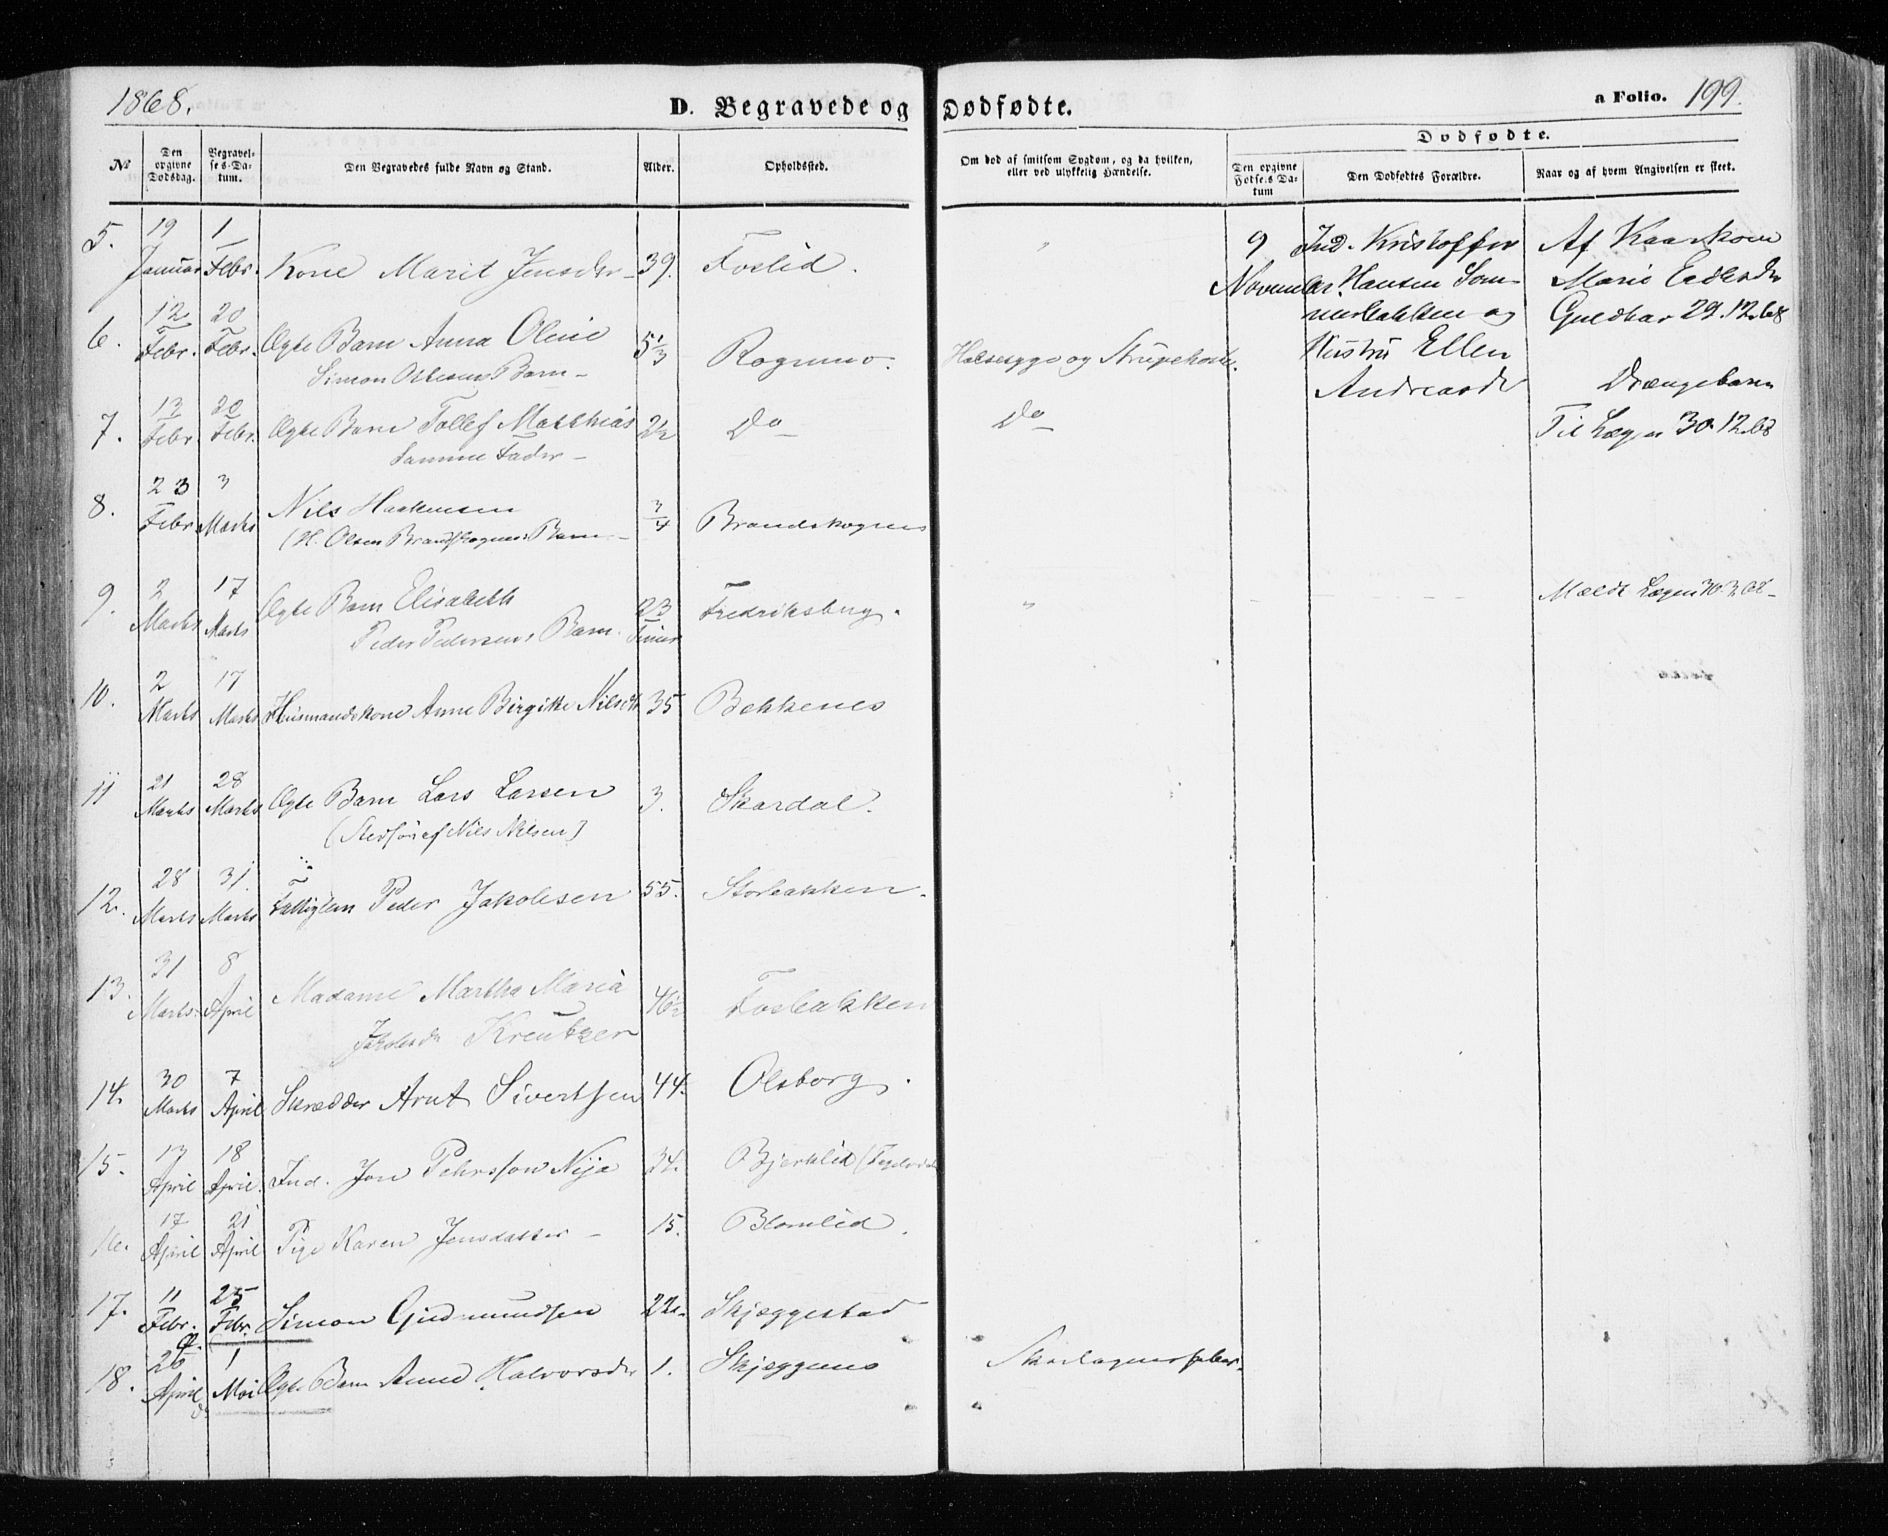 1868.
D. Begravede og Dødfødte.
a Folio. 199.
No
Den opgivne Dødsdag.
Begravelses-Datum.
Den Begravedes fulde Navn og Stand.
Alder.
Opholdssted.
Om død af smitsom Sygdom, og da hvilken, eller ved ulykkelig Hændelse.
Dødfødte.
Den opgivne Fødsels-Datum
Den Dødfødtes Forældre.
Naar og af hvem Angivelsen er skeet.
5. 19 Januar 1 Febr. Kone Marit Jensdr 39. Foslid. "
6. 12 Febr. 20 Febr. Ægte Barn Anna Oline 5 1/3 Rognmo. Halssyge og Strupehoste.
Simon Olsens Barn
7. 13 Febr. 20 Febr. Ægte Barn Tollef Matthias 2 1/2 Do Do
Samme Fader
8. 23 Febr. 3 Marts Nils Haakensen 3/4 Brandskognes
(H. Olsen Brandskognes Barn
9. 2 Marts 17 Marts Ægte Barn Elisabeth 23 Timer Fredriksberg. "
Peder Pedersens Barn.
10. 2 Marts 17 Marts Husmandskone Anne Birgitte Nilsdtr 35 Bekkenes
11 21 Marts 28 Marts Ægte Barn Lars Larsen 3. Skardal.
(Stedsøn af Nils Nilsen)
12. 28 Marts 31. Marts Fattiglem Peder Jakobsen 55. Storbakken.
13. 31 Marts. 8 April Madame Martha Maria 46 1/2 Fosbakken
Jakobsdr Kreutzer
14. 30 Marts 7 April Skrædder Arnt Sivertsen 44. Olsborg.
15. 13 April 18 April. Ind. Jon Pehrsson Nija 34. Bjerklid
16. 17 April 21 April Pige Karen Jensdatter 15. Blomlid.
17. 11 Febr. 25 Febr. Simon Gudmundsen Skjæggestad
18. 26 April 1 Mai Ægte Barn Anne Halvorsdr 1. Skjæggenes Skarlagensfeber
9 November
Ind. Kristoffer
Hansen Som-
merbakken og
Hustru Ellen
Andreasdr
Af Kaarkone
Marie
29.12.68
Drængebarn
Til Lægen 30.12.68
Meldt Lægen 30.3.68